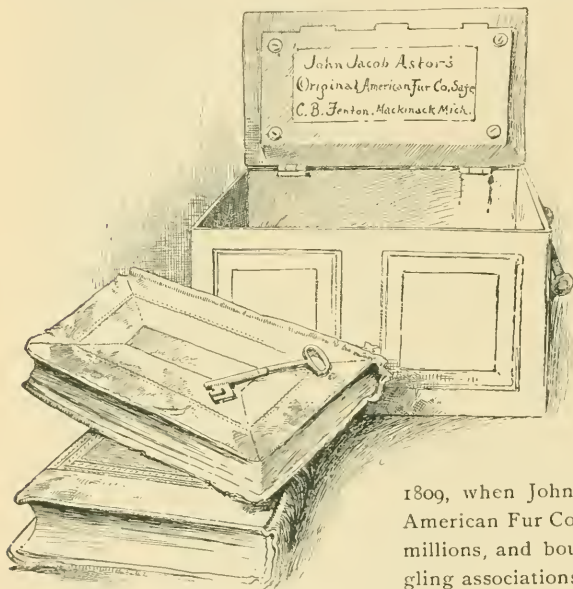 John Jacob Astor's
Original American Fur Co. Safe
C. B. Fenton. Mackinack Mich.
1809, when John
American Fur Co
millions, and bou
gling associations